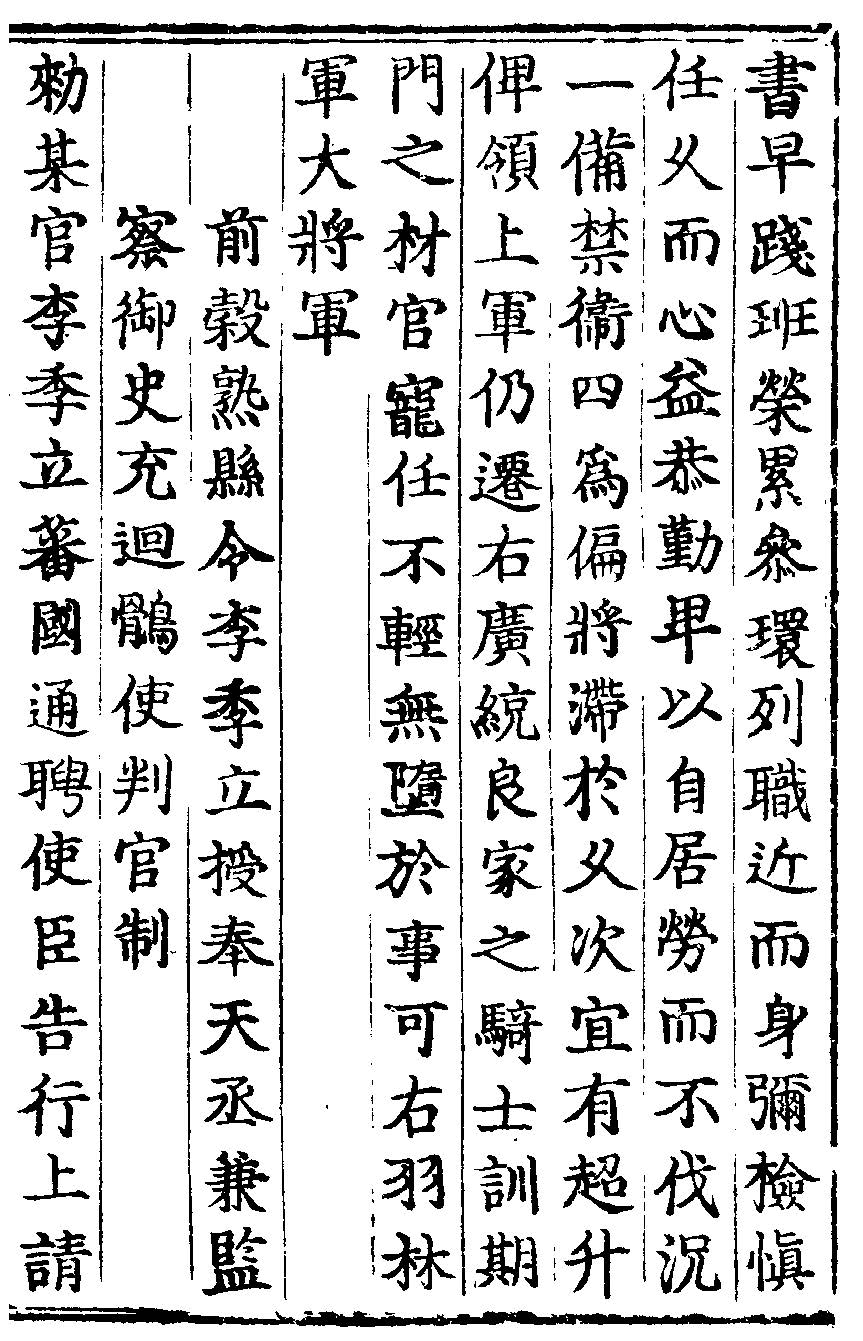 書早踐班榮累叅環列職近而身彌檢愼
任乆而心益恭勤卑以自居勞而不伐况
一備禁衞四爲偏將滯於乆次宜有超升
俾領上軍仍遷右廣統良家之騎士訓期
門之材官寵任不輕無墮於事可右羽林
軍大將軍
前穀熟縣令李季立授奉天丞兼監
察御史充迴鶻使判官制
勑某官李季立蕃國通聘使臣告行上請